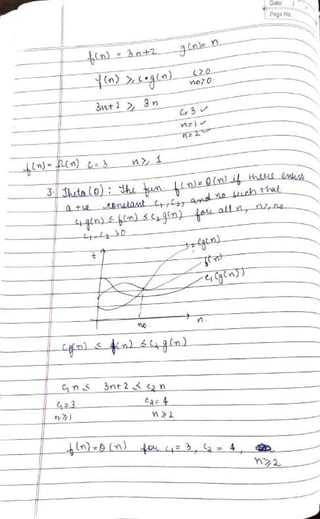 Date / /
Page No.
f(n) = 3n+2 g(n) = n
f(n) ≥ c g(n) c>0
n0>0
3n+2 ≥ 3n
c=3 ✓
n=1 ✓
n=2 ✓
f(n) = Ω(n) c=3 n ≥ 1
3. Theta (θ) : The fun f(n) = θ(n) if there exists
a +ve constant c1, c2, and no such that
c1 g(n) ≤ f(n) ≤ c2 g(n) for all n, n≥n0
c1, c2 >0
t
c2 (g(n))
f(n)
c1 (g(n))
n0
n.
c g(n) ≤ f(n) ≤ c4 g(n)
c1 n ≤ 3n+2 ≤ c2 n
c1=3 c2=4
n≥1 n≥2
f(n) = θ(n) for c1 = 3, c2 = 4,
n≥2